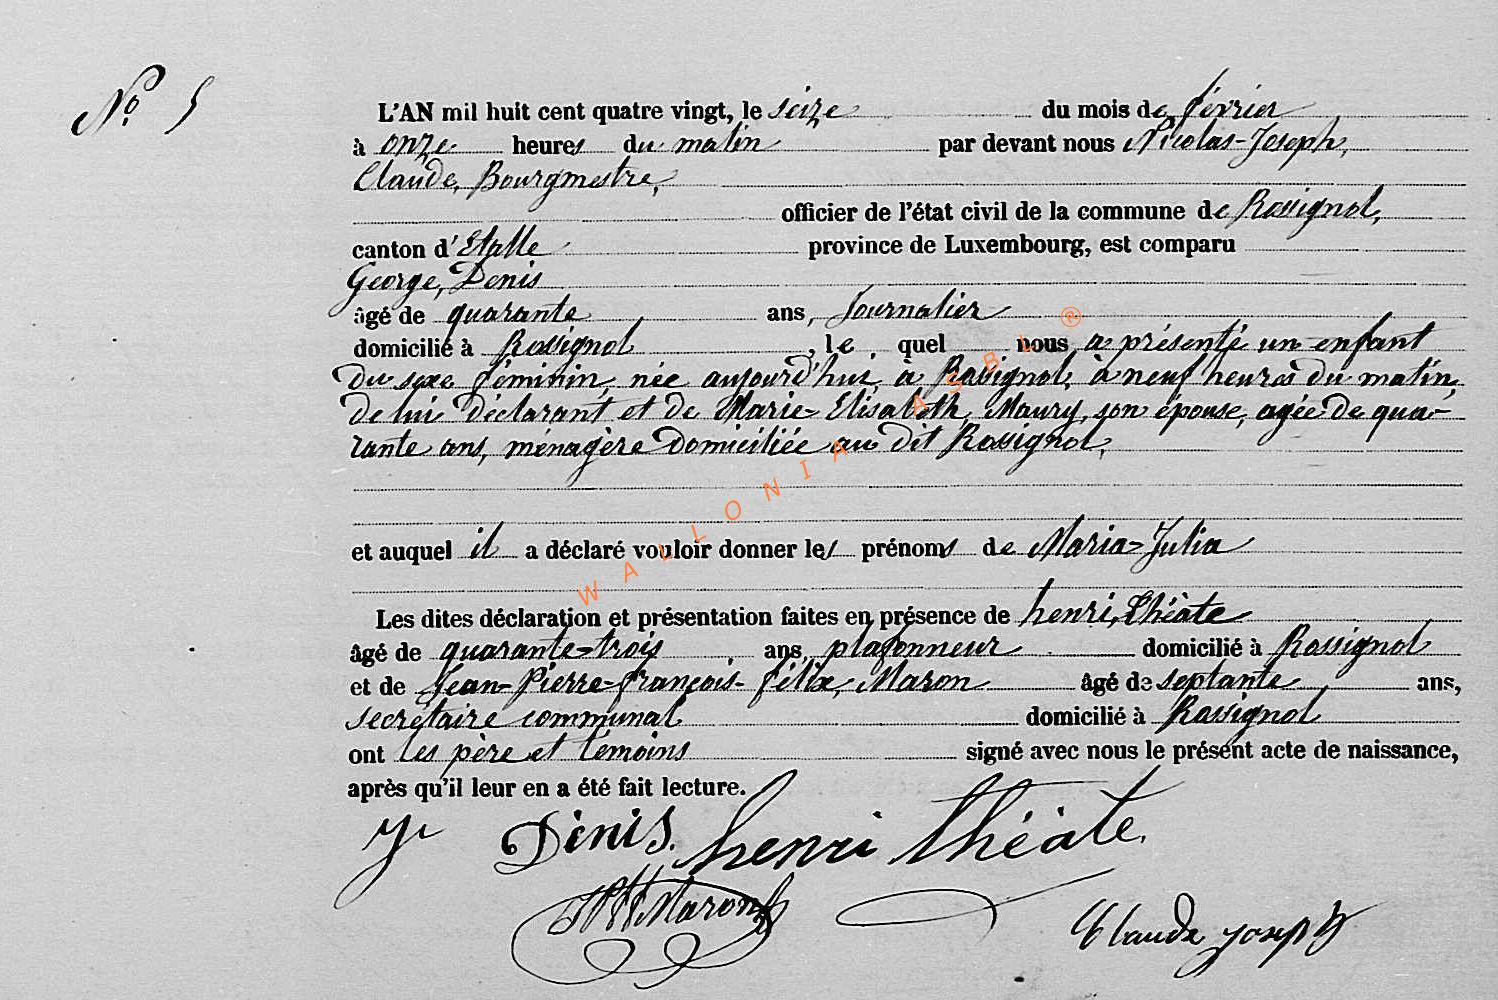 N.º 5
L'AN mil huit cent quatre vingt, le seize du mois de février
à onze heures du matin par devant nous Nicolas-Joseph,
Claude, Bourgmestre,
officier de l'état civil de la commune de Rossignol,
canton d'Etalle province de Luxembourg, est comparu
George, Denis
âgé de quarante ans, Journalier
domicilié à Rossignol, le quel nous a présenté un enfant
du sexe féminin, née aujourd'hui, à Rossignol, à neuf heures du matin,
de lui déclarant et de Marie-Elisabeth, Maury, son épouse, agée de qua-
rante ans, ménagère domiciliée au dit Rossignol,
et auquel il a déclaré vouloir donner les prénoms de Maria-Julia
Les dites déclaration et présentation faites en présence de henri, Théate
âgé de quarante-trois ans, plafonneur domicilié à Rossignol
et de Jean-Pierre-françois-félix, Maron âgé de septante ans,
secrétaire communal domicilié à Rossignol
ont les père et témoins signé avec nous le présent acte de naissance,
après qu'il leur en a été fait lecture.
Denis. henri théate.
Maron
Claude joseph
WALLONIA ASBL ®